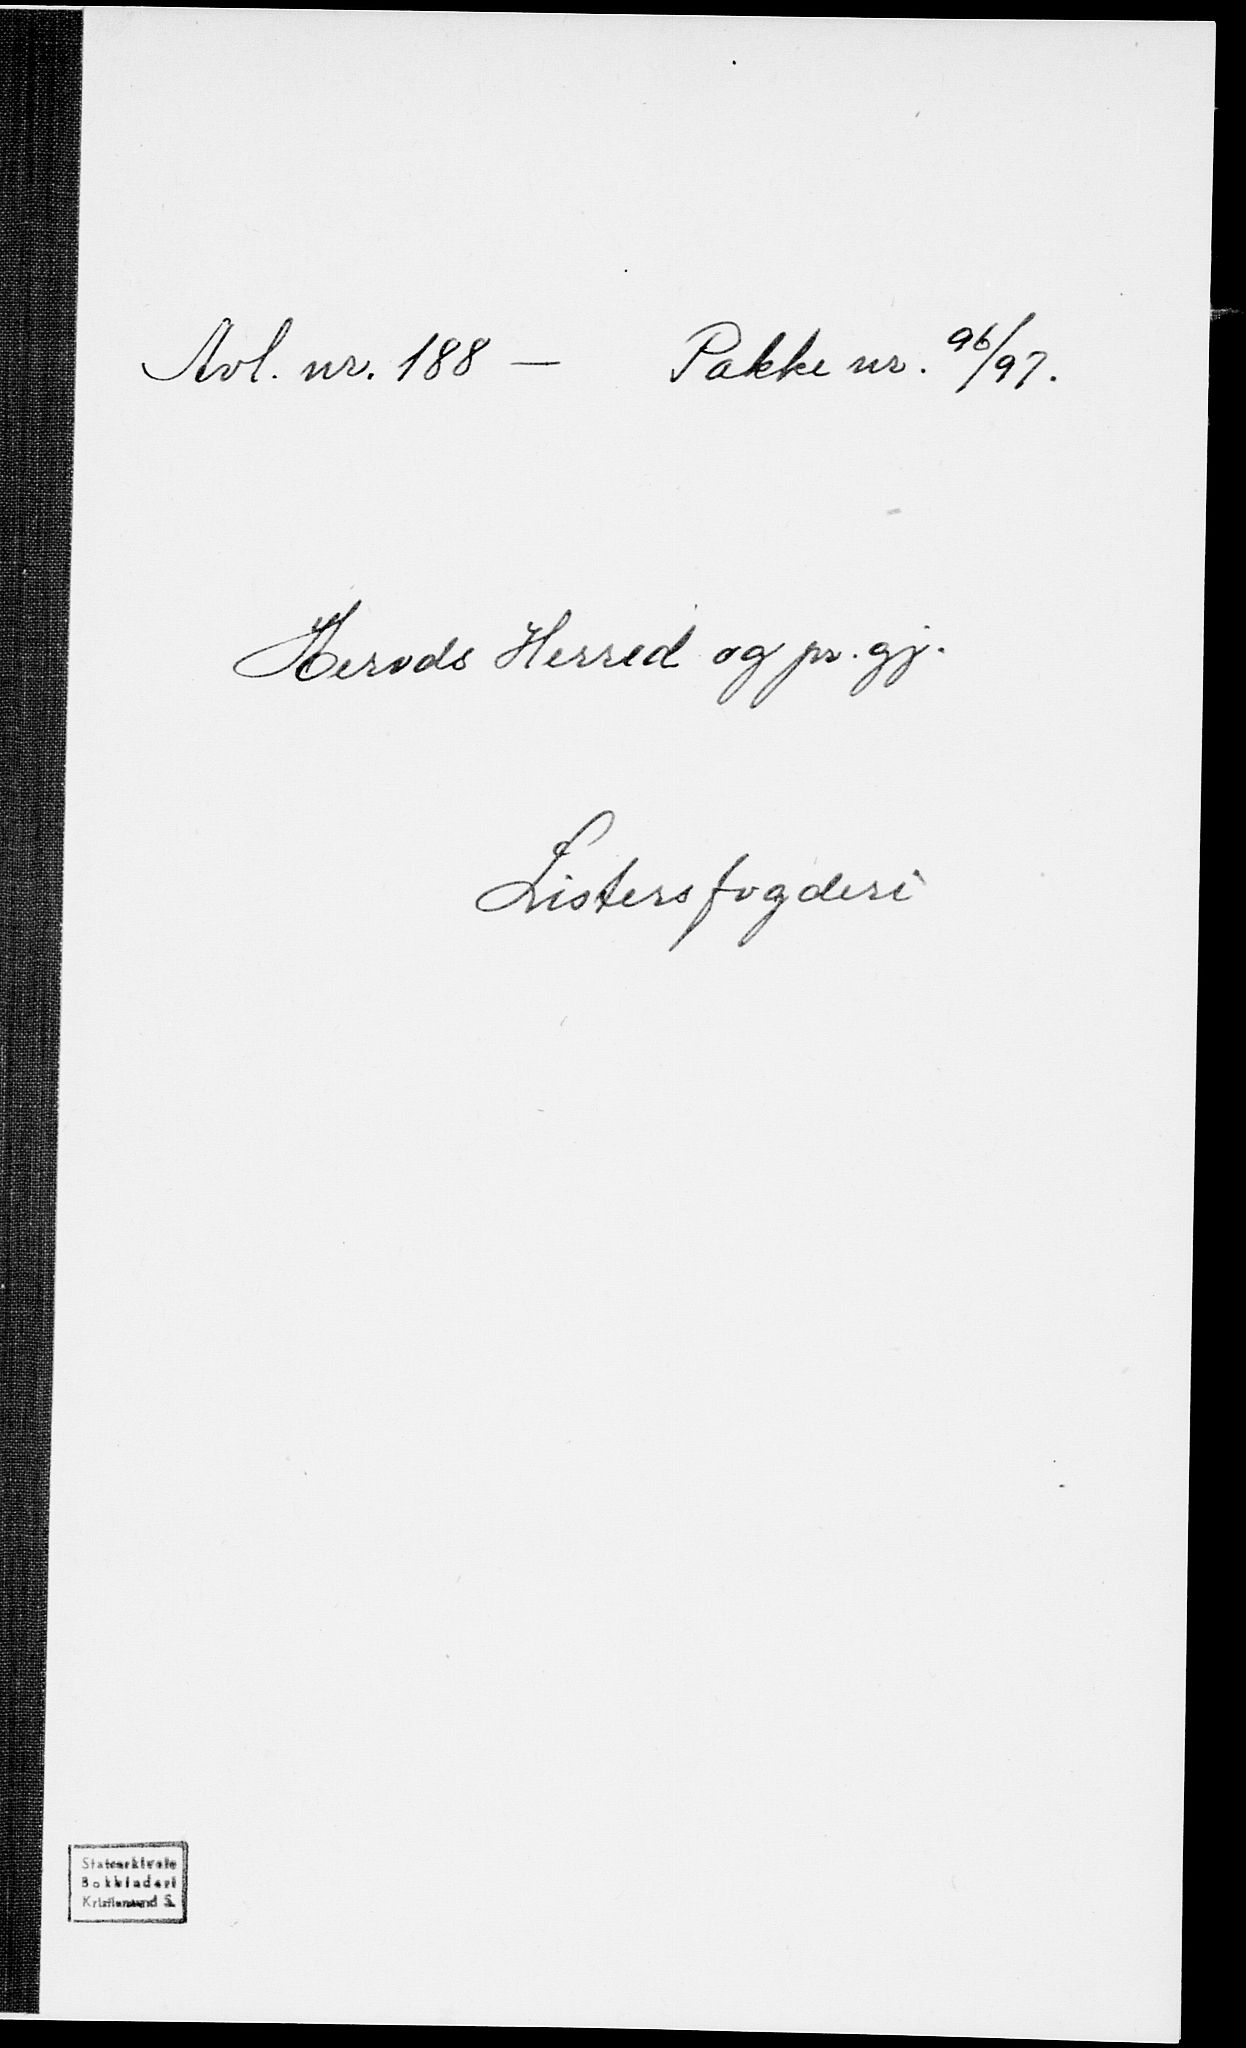 Avl. nr. 188 — Pakke nr. 96/97.
Herods Herred og pr. gj.
Listers fogderi
Statsarkivets
Bokbinderi
Kristiansand S.